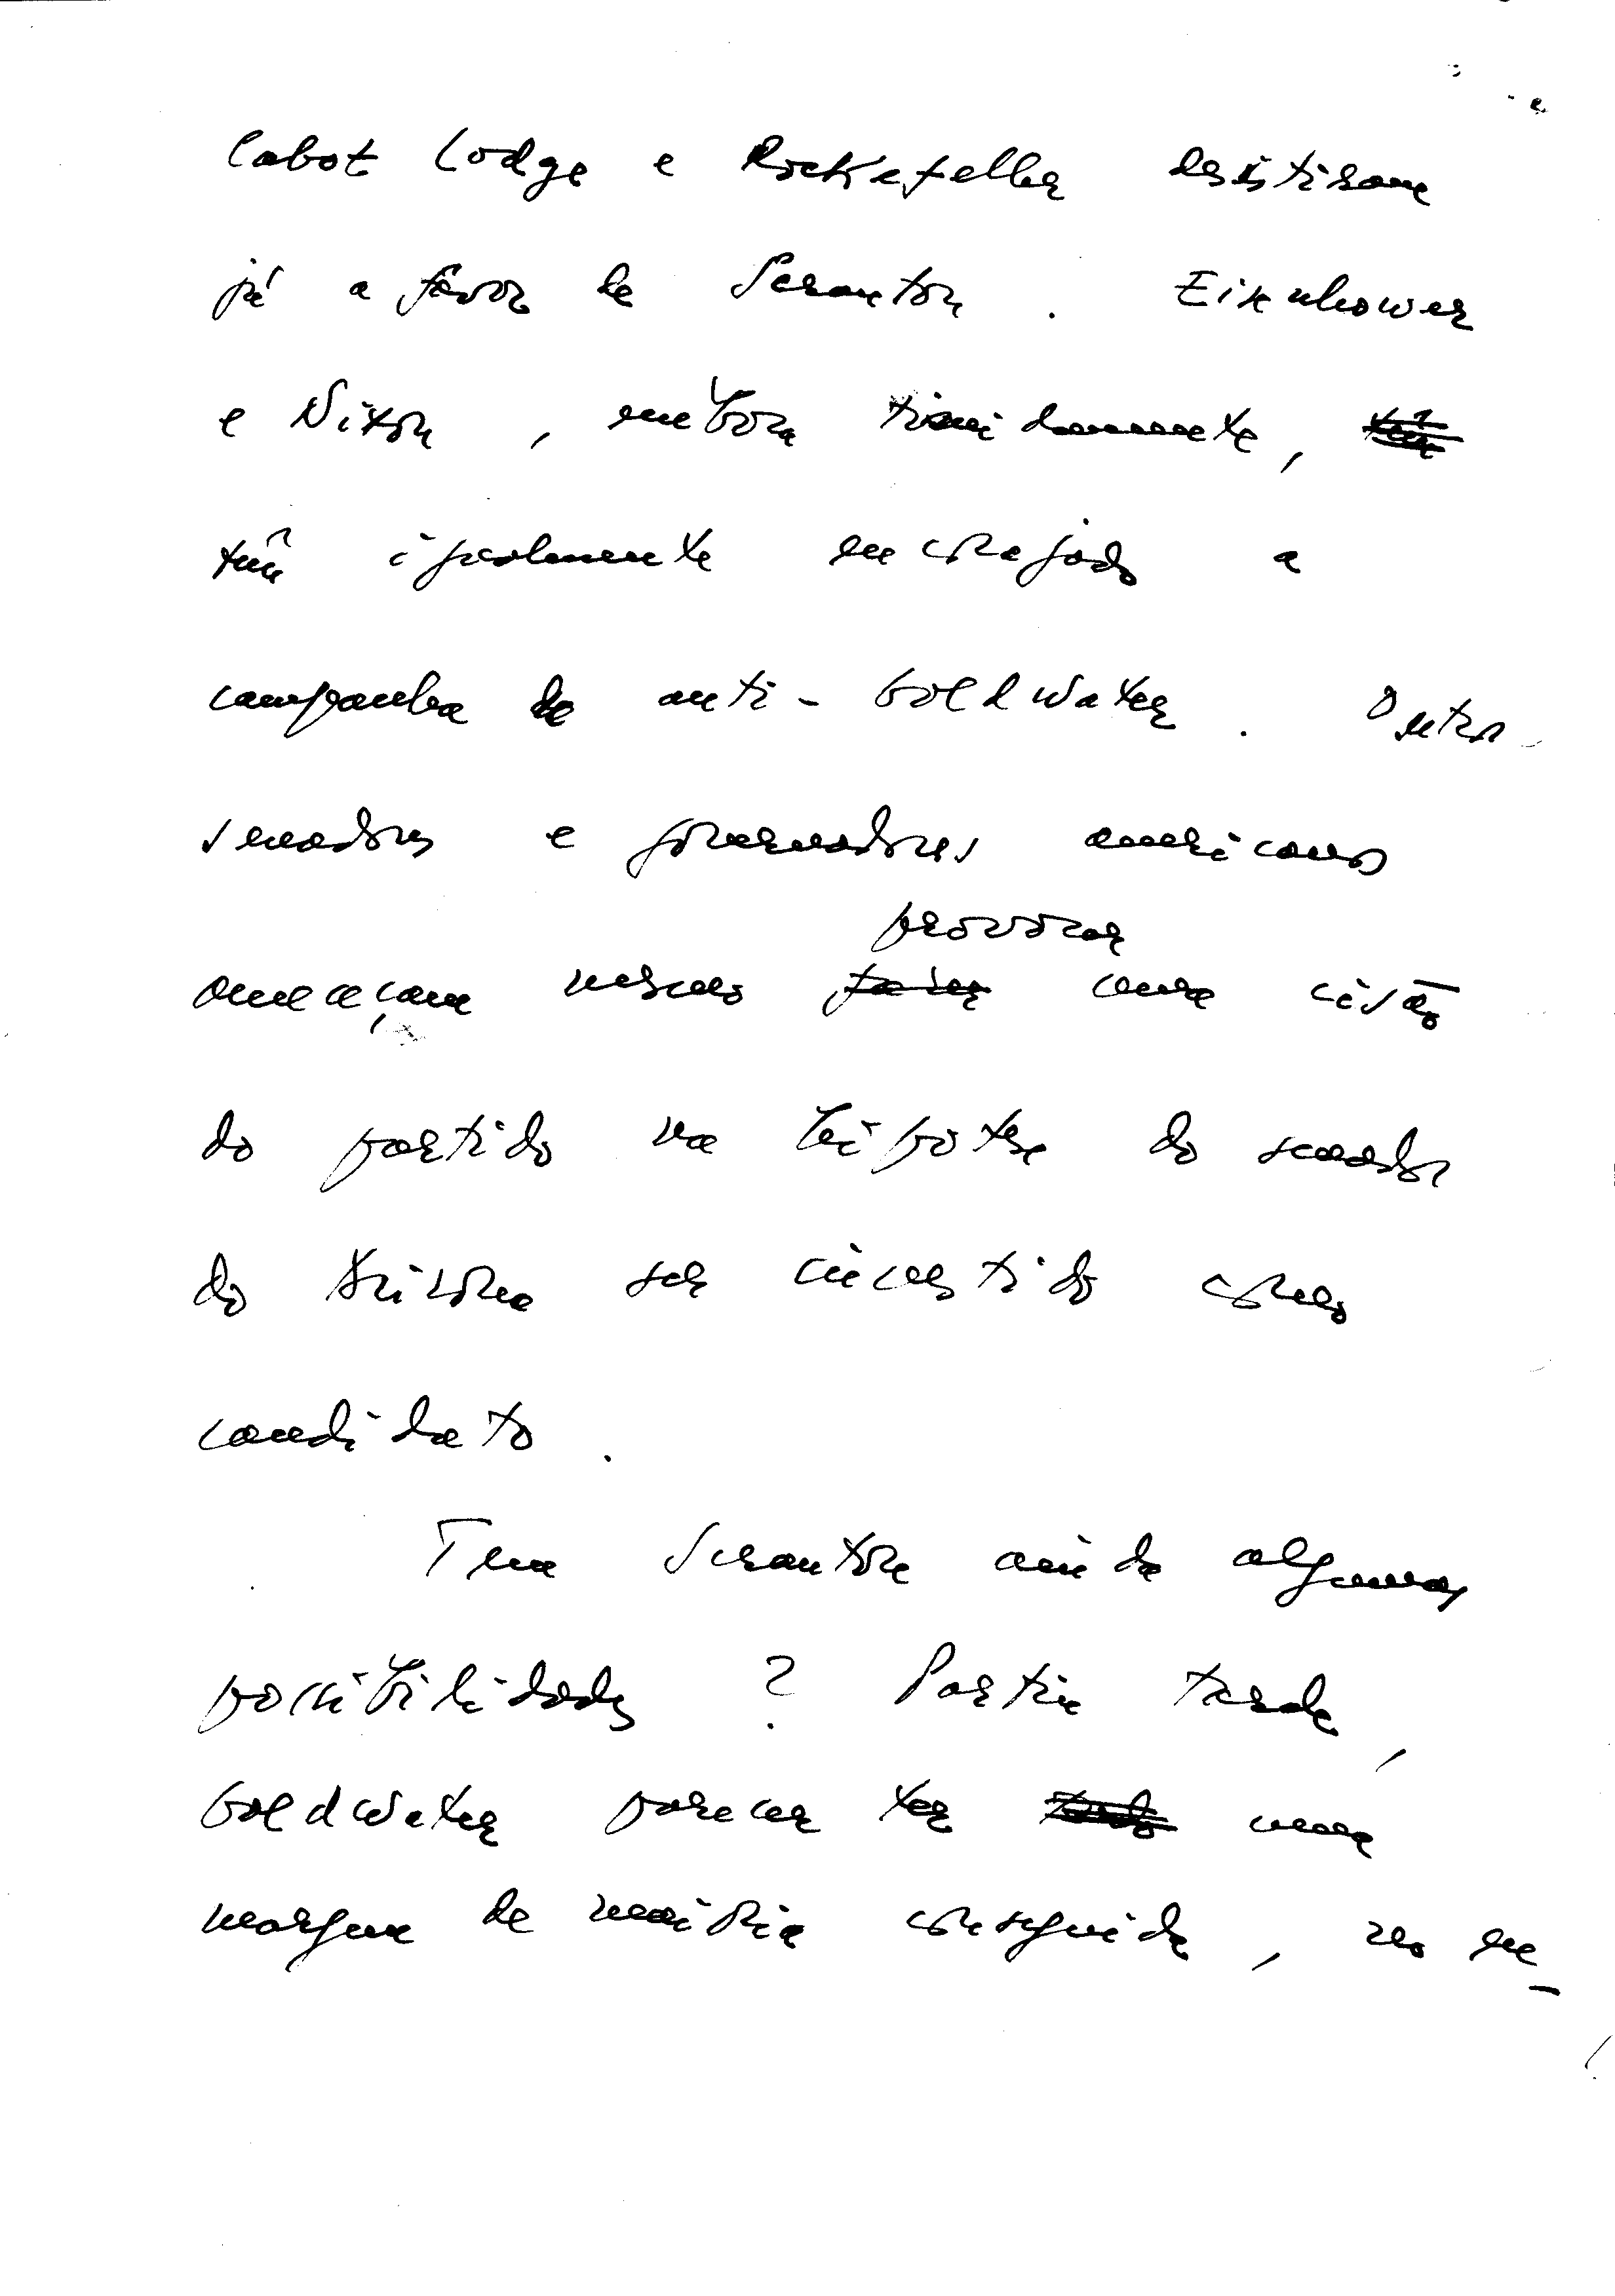 Cabot Lodge e Rockefeller desistiram
já a favor de Scranton. Eisenhower
e Nixon, embora timidamente, têm
têm igualmente encorajado a
campanha de anti-Goldwater. Outros
senadores e governadores americanos
provocar
ameaçam mesmo fazer uma cisão
do partido na hipótese do senador
do Arizona ser investido como
candidato.
Tem Scranton ainda algumas
possibilidades? Partiu tarde,
Goldwater parecer ter uma
margem de maioria conseguida, no en-